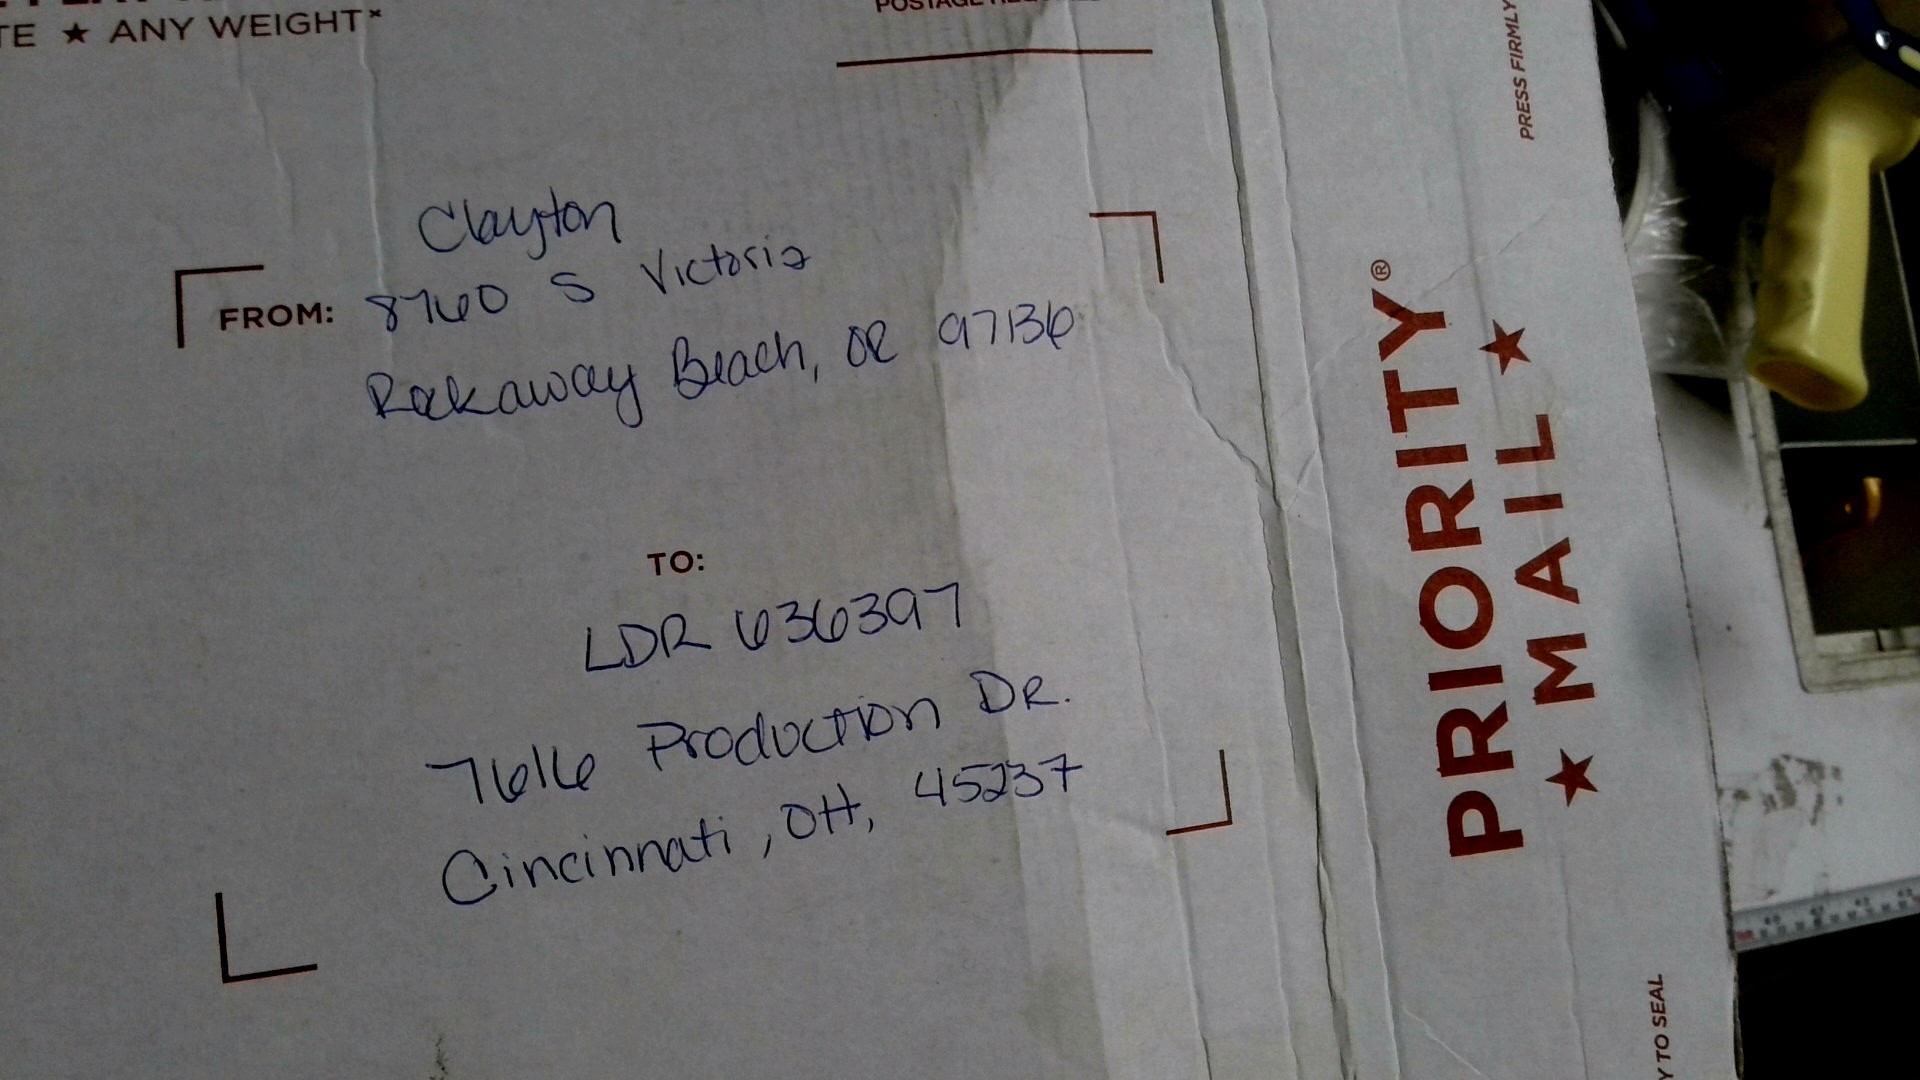 TE ★ ANY WEIGHT*
POSTAGE
PRESS FIRMLY
Clayton
FROM: 8760 S Victoria
Rockaway Beach, OR 97136
TO:
LDR 636397
7616 Production DR.
Cincinnati, OH, 45237
PRIORITY®
★ MAIL ★
Y TO SEAL